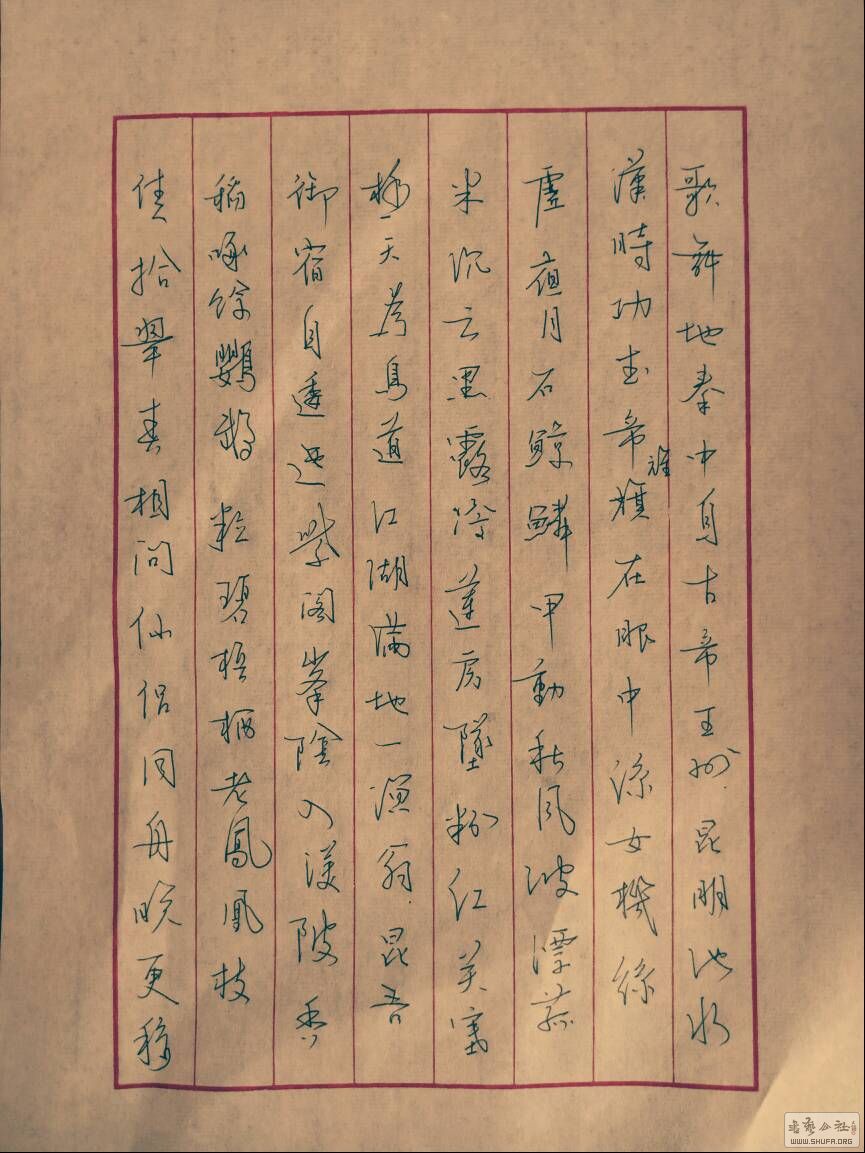 歌舞地秦中自古帝王州昆明池水
漢時功武帝旌旗在眼中織女機絲
虛夜月石鯨鱗甲動秋風波漂菰
米沉云黑露冷蓮房墜粉紅關塞
極天為鳥道江湖滿地一漁翁昆吾
御宿自逶迤紫閣峯陰入渼陂香
稻啄餘鸚鵡粒碧梧栖老鳳凰枝
佳人拾翠春相問仙侶同舟晚更移
書藝公社
WWW.SHUFA.ORG